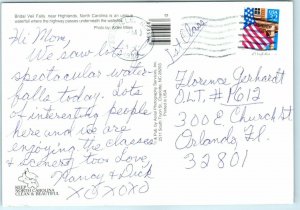 Bridal Veil Falls, near Highlands, North Carolina is an unique
waterfall where the highway passes underneath the waterfall.
Hi Mom,
We saw lots of
spectacular water-
falls today. Lots
of interesting people
here and we are
enjoying the classes
& scenery too. Love,
Nancy & Dick
XOXOXO
KEEP
NORTH CAROLINA
CLEAN & BEAUTIFUL
1st Class
USA
32
Florence Gerhardt
D.L.T. # 1612
300 E Church St
Orlando, Fl.
32801